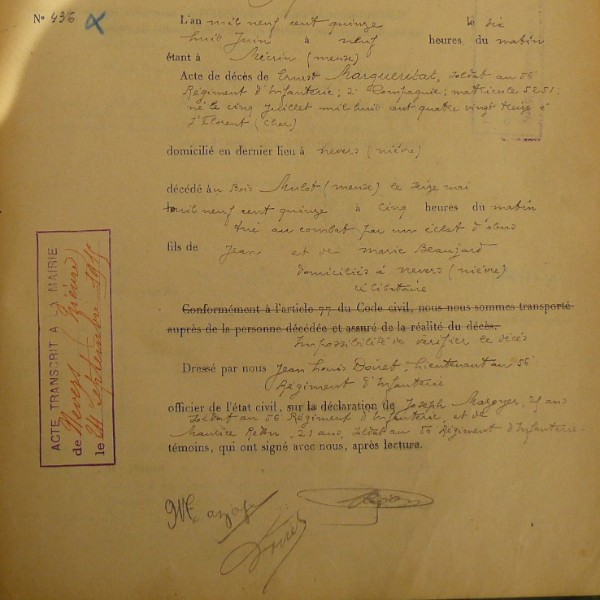 N° 436
L'an mil neuf cent quinze le dix
huit Juin à neuf heures du matin
étant à Mécrin (meuse)
Acte de décès de Ernest Margueritat, soldat au 56
Régiment d'Infanterie; 2e Compagnie; matricule 5251;
né le cinq Juillet mil huit cent quatre vingt treize à
St Florent (Cher)
domicilié en dernier lieu à nevers (nièvre)
décédé au Bois Mulot (meuse) le seize mai
mil neuf cent quinze à cinq heures du matin
tué au combat par un éclat d'obus
fils de Jean et de marie Beaujard
domiciliés à nevers (nièvre)
célibataire
Conformément à l'article 77 du Code civil, nous nous sommes transporté
auprès de la personne décédée et assuré de la réalité du décès.
Impossibilité de vérifier le décès
Dressé par nous Jean Louis Doiret, Lieutenant au 56
Régiment d'Infanterie
officier de l'état civil, sur la déclaration de Joseph Mazoyer, 21 ans
Soldat au 56 Régiment d'Infanterie, et de
Maurice Redon, 21 ans, soldat au 56 Régiment d'Infanterie
témoins, qui ont signé avec nous, après lecture.
ACTE TRANSCRIT A LA MAIRIE
de Nevers (Nièvre)
le septembre 1915